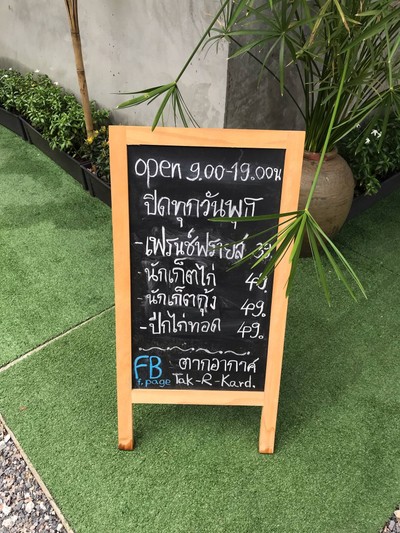 open 9.00-19.00น
ปิดทุกวันพุธ
-เฟรนช์ฟรายส์
-นักเก็ตไก่
-นักเก็ตกุ้ง 49.
-ปีกไก่ทอด 49.
FB ตากอากาศ
f. page Tak-R-Kard.